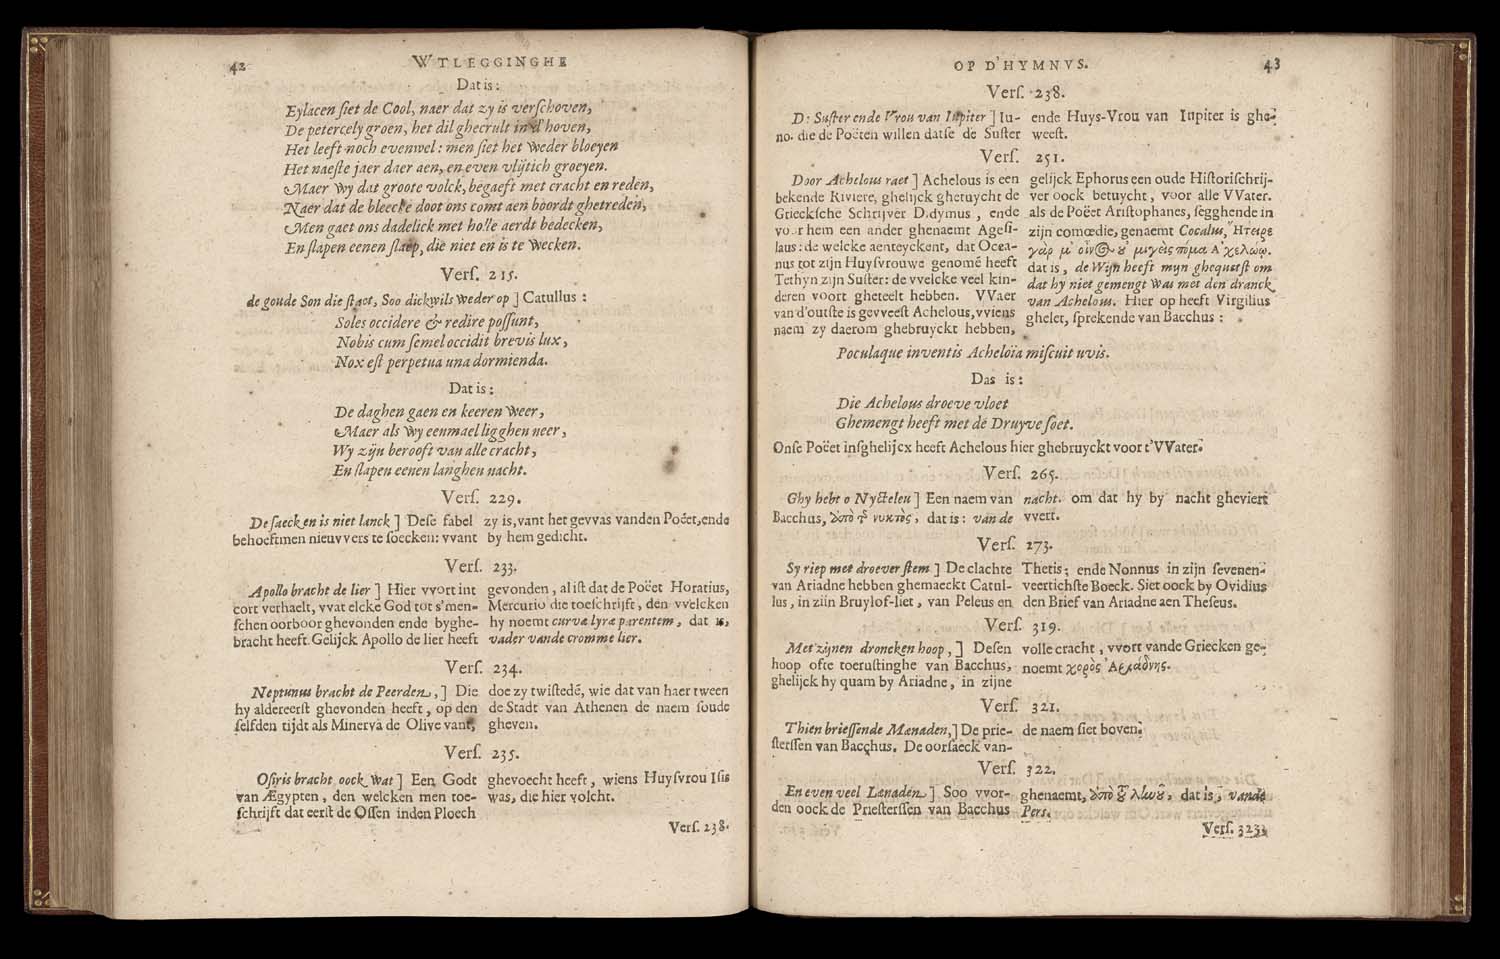 42 WTLEGGINGHE
Dat is:
Eylacen siet de Cool, naer dat zy is verschoven,
De petercely groen, het dil ghecrult in d'hoven,
Het leeft noch evenwel: men siet het weder bloeyen
Het naeste jaer daer aen, en even vlijtich groeyen.
Maer wy dat groote volck, begaeft met cracht en reden,
Naer dat de bleecke doot ons comt aen boordt ghetreden,
Men gaet ons dadelick met holle aerdt bedecken,
En slapen eenen slaep, die niet en is te wecken.
Vers. 215.
de goude Son die staet, Soo dickwils weder op ] Catullus:
Soles occidere & redire possunt,
Nobis cum semel occidit brevis lux,
Nox est perpetua una dormienda.
Dat is:
De daghen gaen en keeren weer,
Maer als wy eenmael ligghen neer,
Wy zijn berooft van alle cracht,
En slapen eenen langhen nacht.
Vers. 229.
De saecken is niet lanck ] Dese fabel
behoeftmen nieuvvers te soecken: vvant
zy is, vant het gevvas vanden Poëet, ende
by hem gedicht.
Vers. 233.
Apollo bracht de lier ] Hier vvort int
cort verhaelt, vvat elcke God tot s'men-
schen oorboor ghevonden ende byghe-
bracht heeft. Gelijck Apollo de lier heeft
gevonden, al ist dat de Poëet Horatius,
Mercurio die toeschrijft, den vvelcken
hy noemt curvæ lyræ parentem, dat is,
vader vande cromme lier.
Vers. 234.
Neptunus bracht de Peerden, ] Die
hy aldereerst ghevonden heeft, op den
selfden tijdt als Minerva de Olive vant,
doe zy twistedē, wie dat van haer tween
de Stadt van Athenen de naem soude
gheven.
Vers. 235.
Osiris bracht oock wat ] Een Godt
van Ægypten, den welcken men toe-
schrijft dat eerst de Ossen inden Ploech
ghevoecht heeft, wiens Huysvrou Isis
was, die hier volcht.
Vers. 238.
OP D'HYMNVS. 43
Vers. 238.
D: Suster ende Vrou van Iupiter ] Iu-
no. die de Poëten willen datse de Suster
ende Huys-Vrou van Iupiter is ghe-
weest.
Vers. 251.
Door Achelous raet ] Achelous is een
bekende Riviere, ghelijck ghetuycht de
Griecksche Schrijver Didymus, ende
voor hem een ander ghenaemt Agesi-
laus: de welcke aenteyckent, dat Ocea-
nus tot zijn Huysvrouwe genomē heeft
Tethyn zijn Suster: de vvelcke veel kin-
deren voort gheteelt hebben. VVaer
van d'outste is gevveest Achelous, vviens
naem zy daerom ghebruyckt hebben,
gelijck Ephorus een oude Historischrij-
ver oock betuycht, voor alle VVater.
als de Poëet Aristophanes, segghende in
zijn comœdie, genaemt Cocalus, Ητειρε
γὰρ μ' οἶνος οὐ μιγεὶς πόμα Α'χελώῳ.
dat is, de Wijn heeft mijn ghequetst om
dat hy niet gemengt was met den dranck
van Achelous. Hier op heeft Virgilius
ghelet, sprekende van Bacchus:
Poculaque inventis Acheloïa miscuit uvis.
Das is:
Die Achelous droeve vloet
Ghemengt heeft met de Druyve soet.
Onse Poëet insghelijcx heeft Achelous hier ghebruyckt voor t'VVater.
Vers. 265.
Ghy hebt o Nycteleu ] Een naem van
Bacchus, ἀπὸ τῆς νυκτὸς, dat is: van de
nacht. om dat hy by nacht gheviert
vvert.
Vers. 273.
Sy riep met droever stem ] De clachte
van Ariadne hebben ghemaeckt Catul-
lus, in zijn Bruylof-liet, van Peleus en
Thetis; ende Nonnus in zijn sevenen-
veertichste Boeck. Siet oock by Ovidius
den Brief van Ariadne aen Theseus.
Vers. 319.
Met zijnen droncken hoop, ] Desen
hoop ofte toerustinghe van Bacchus,
ghelijck hy quam by Ariadne, in zijne
volle cracht, vvort vande Griecken ge-
noemt χορὸς Ἀριάδνης.
Vers. 321.
Thien briessende Mænaden, ] De prie-
sterssen van Bacchus. De oorsaeck van-
de naem siet boven.
Vers. 322.
En even veel Lænaden ] Soo vvor-
den oock de Priesterssen van Bacchus
ghenaemt, ἀπὸ τοῦ ληνοῦ, dat is, vande
Pers.
Vers. 323.